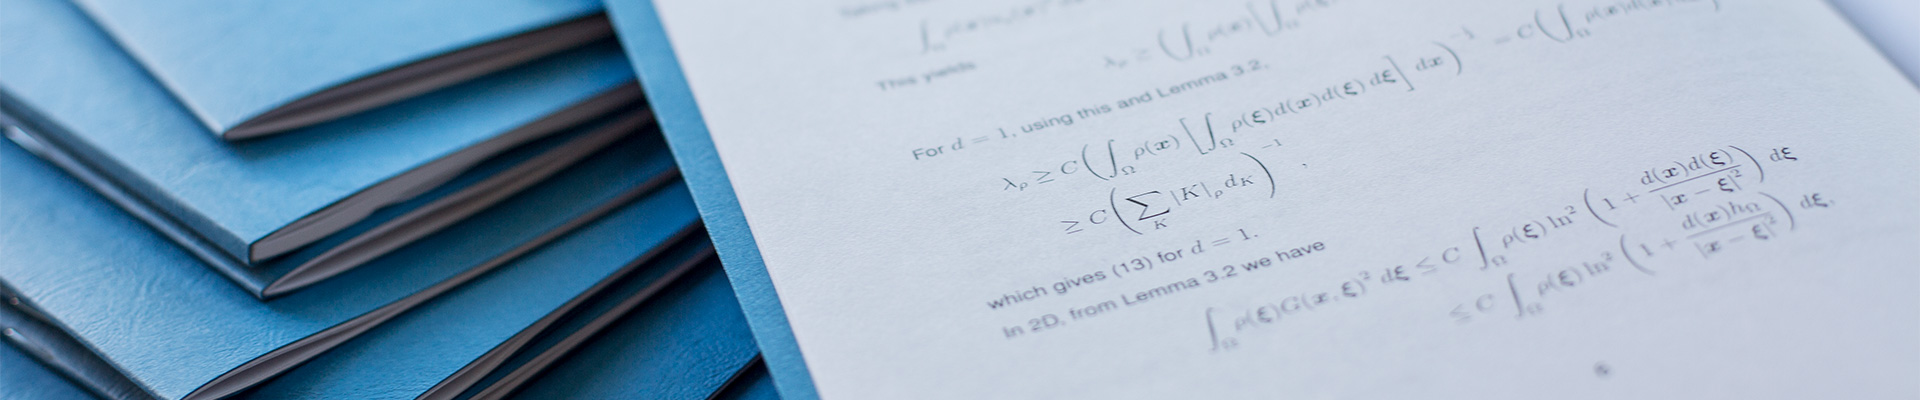 This yields
For d = 1, using this and Lemma 3.2,
λ_ρ ≥ C ( ∫_Ω ρ(x) [ ∫_Ω ρ(ξ)d(x)d(ξ) dξ ] dx )^{-1}
≥ C ( ∑_K |K|_ρ d_K )^{-1} ,
which gives (13) for d = 1.
In 2D, from Lemma 3.2 we have
∫_Ω ρ(ξ)G(x, ξ)² dξ ≤ C ∫_Ω ρ(ξ) ln² ( 1 + d(x)d(ξ) / |x − ξ|² ) dξ
≤ C ∫_Ω ρ(ξ) ln² ( 1 + d(x)h_Ω / |x − ξ|² ) dξ.